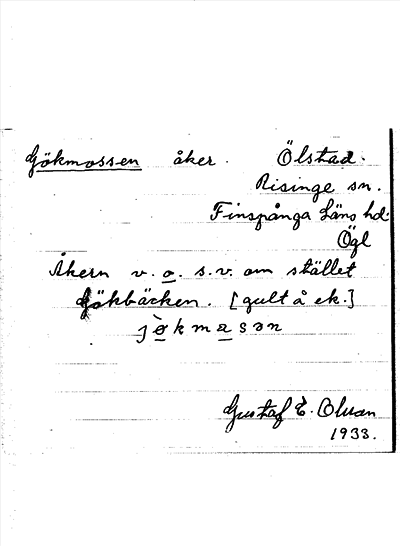 Gökmossen åker. Ölstad.
Risinge sn.
Finspånga Läns hd.
Ögl
Åkern v. o. s.v. om stället
Gökbäcken. [gult å ek.]
jøkmasən
Gustaf E.
1933.